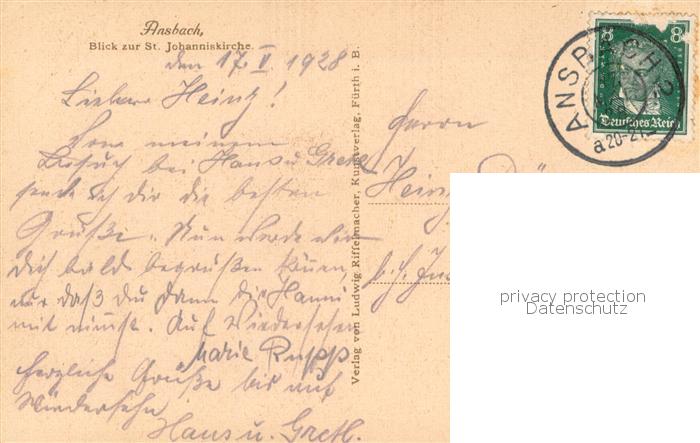 Ansbach,
Blick zur St. Johanniskirche.
den 17. V. 1928
Lieber Heinz!
Von meinem
Besuch bei Hans u. Gretl
sende ich dir die besten
Grüße. Nun werde wir
Dich bald begrüßen können,
nur daß du dann die Hanni
mit nimst. Auf Wiedersehen
Marie Rupp
herzliche Grüße bis auf
Wiedersehn
Hans u. Gretl.
Verlag von Ludwig Riffelmacher, Kunstverlag, Fürth i. B.
Herrn
Heinz
b. H.
8 8
Deutsches Reich
ANSBACH 2
a 20-21
privacy protection
Datenschutz